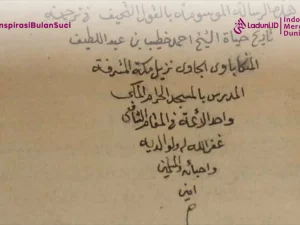 #InspirasiBulanSuci
Laduni.ID
هذه الرسالة الموسومة بالقول التحيف في ترجمة
تاريخ حياة الشيخ احمد خطيب بن عبد اللطيف
المنكاباوي الجاوي نزيل مكة المشرفة
المدرس بالمسجد الحرام المكي
واحد الأئمة في المقام الشافعي
غفر الله له ولوالديه
واحبائه والمسلمين
امين
م